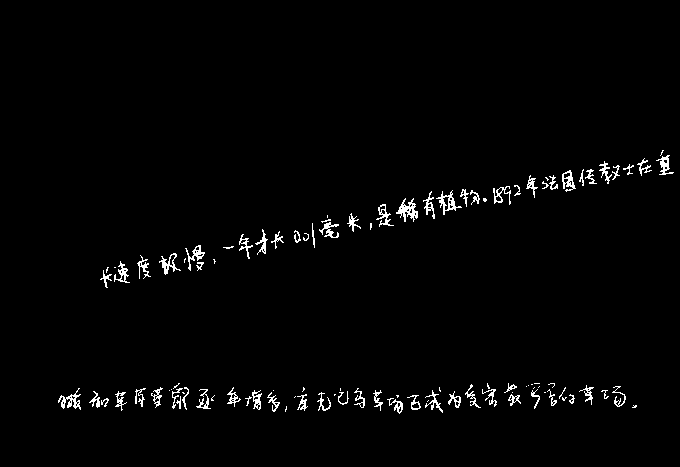 长速度较慢,一年才长0.01毫米,是稀有植物.1892年法国传教士在重
加草原鼠逐年增多,草场已成为受害最严重的草场。